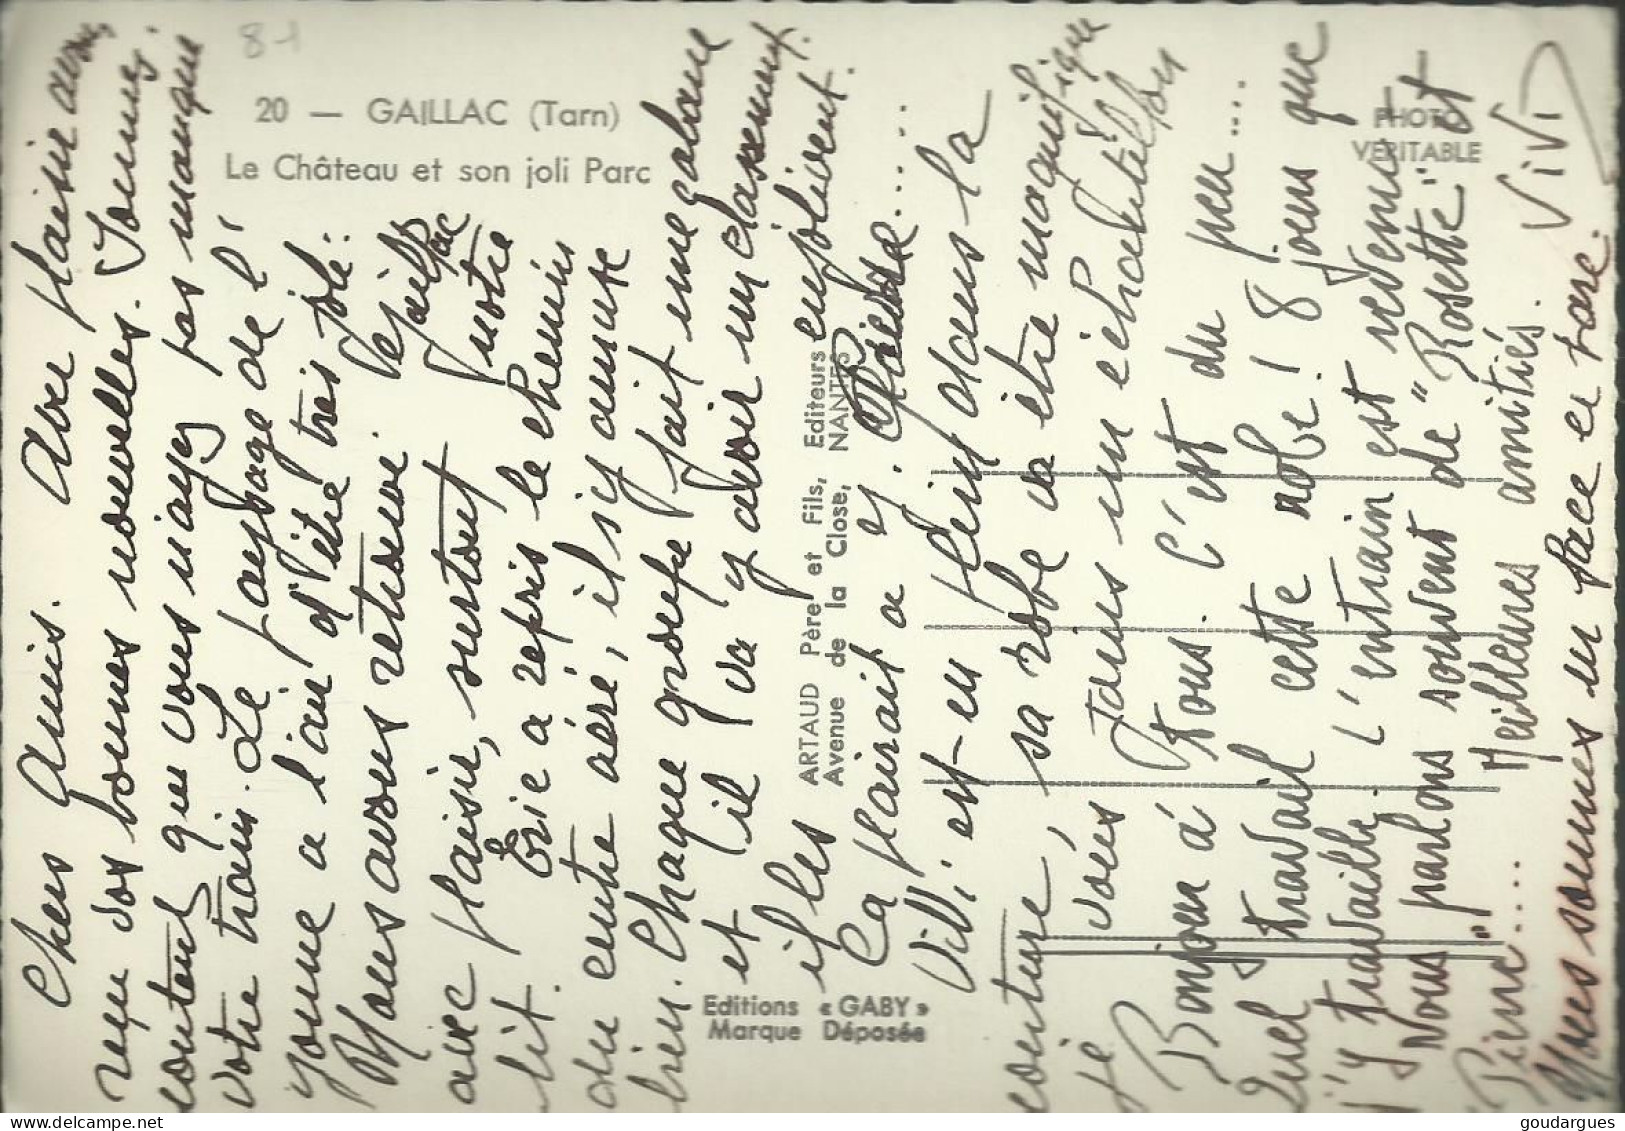 81
20 — GAILLAC (Tarn)
Le Château et son joli Parc
PHOTO
VERITABLE
ARTAUD Père et Fils, Editeurs
Avenue de la Close, NANTES
Editions « GABY »
Marque Déposée
Chers Amis. Avec plaisir avons
reçu vos bonnes nouvelles. Sommes
content que vous n'ayez pas manqué
votre train. Le paysage de l'
yonne a l'air d'être très joli.
Nous avons retrouvé
avec plaisir, surtout notre
lit. Eric a repris le chemin
du centre aéré, il s'y amuse
bien. Chaque groupe fait une cabane
et il va y avoir un classement.
ils les enjolivent.
Ca plairait a
ViVi est en plein dans la
couture, sa robe va être magnifique
je vous joins un échantillon
Bonjour à tous. C'est du peu....
Quel travail cette robe ! 8 jours que
j'y travaille. L'entrain est revenu!
Nous parlons souvent de "Rosette" et
"Pierre".... Meilleures amitiés. ViVi
Nous sommes en face et tare.
goudargues.com